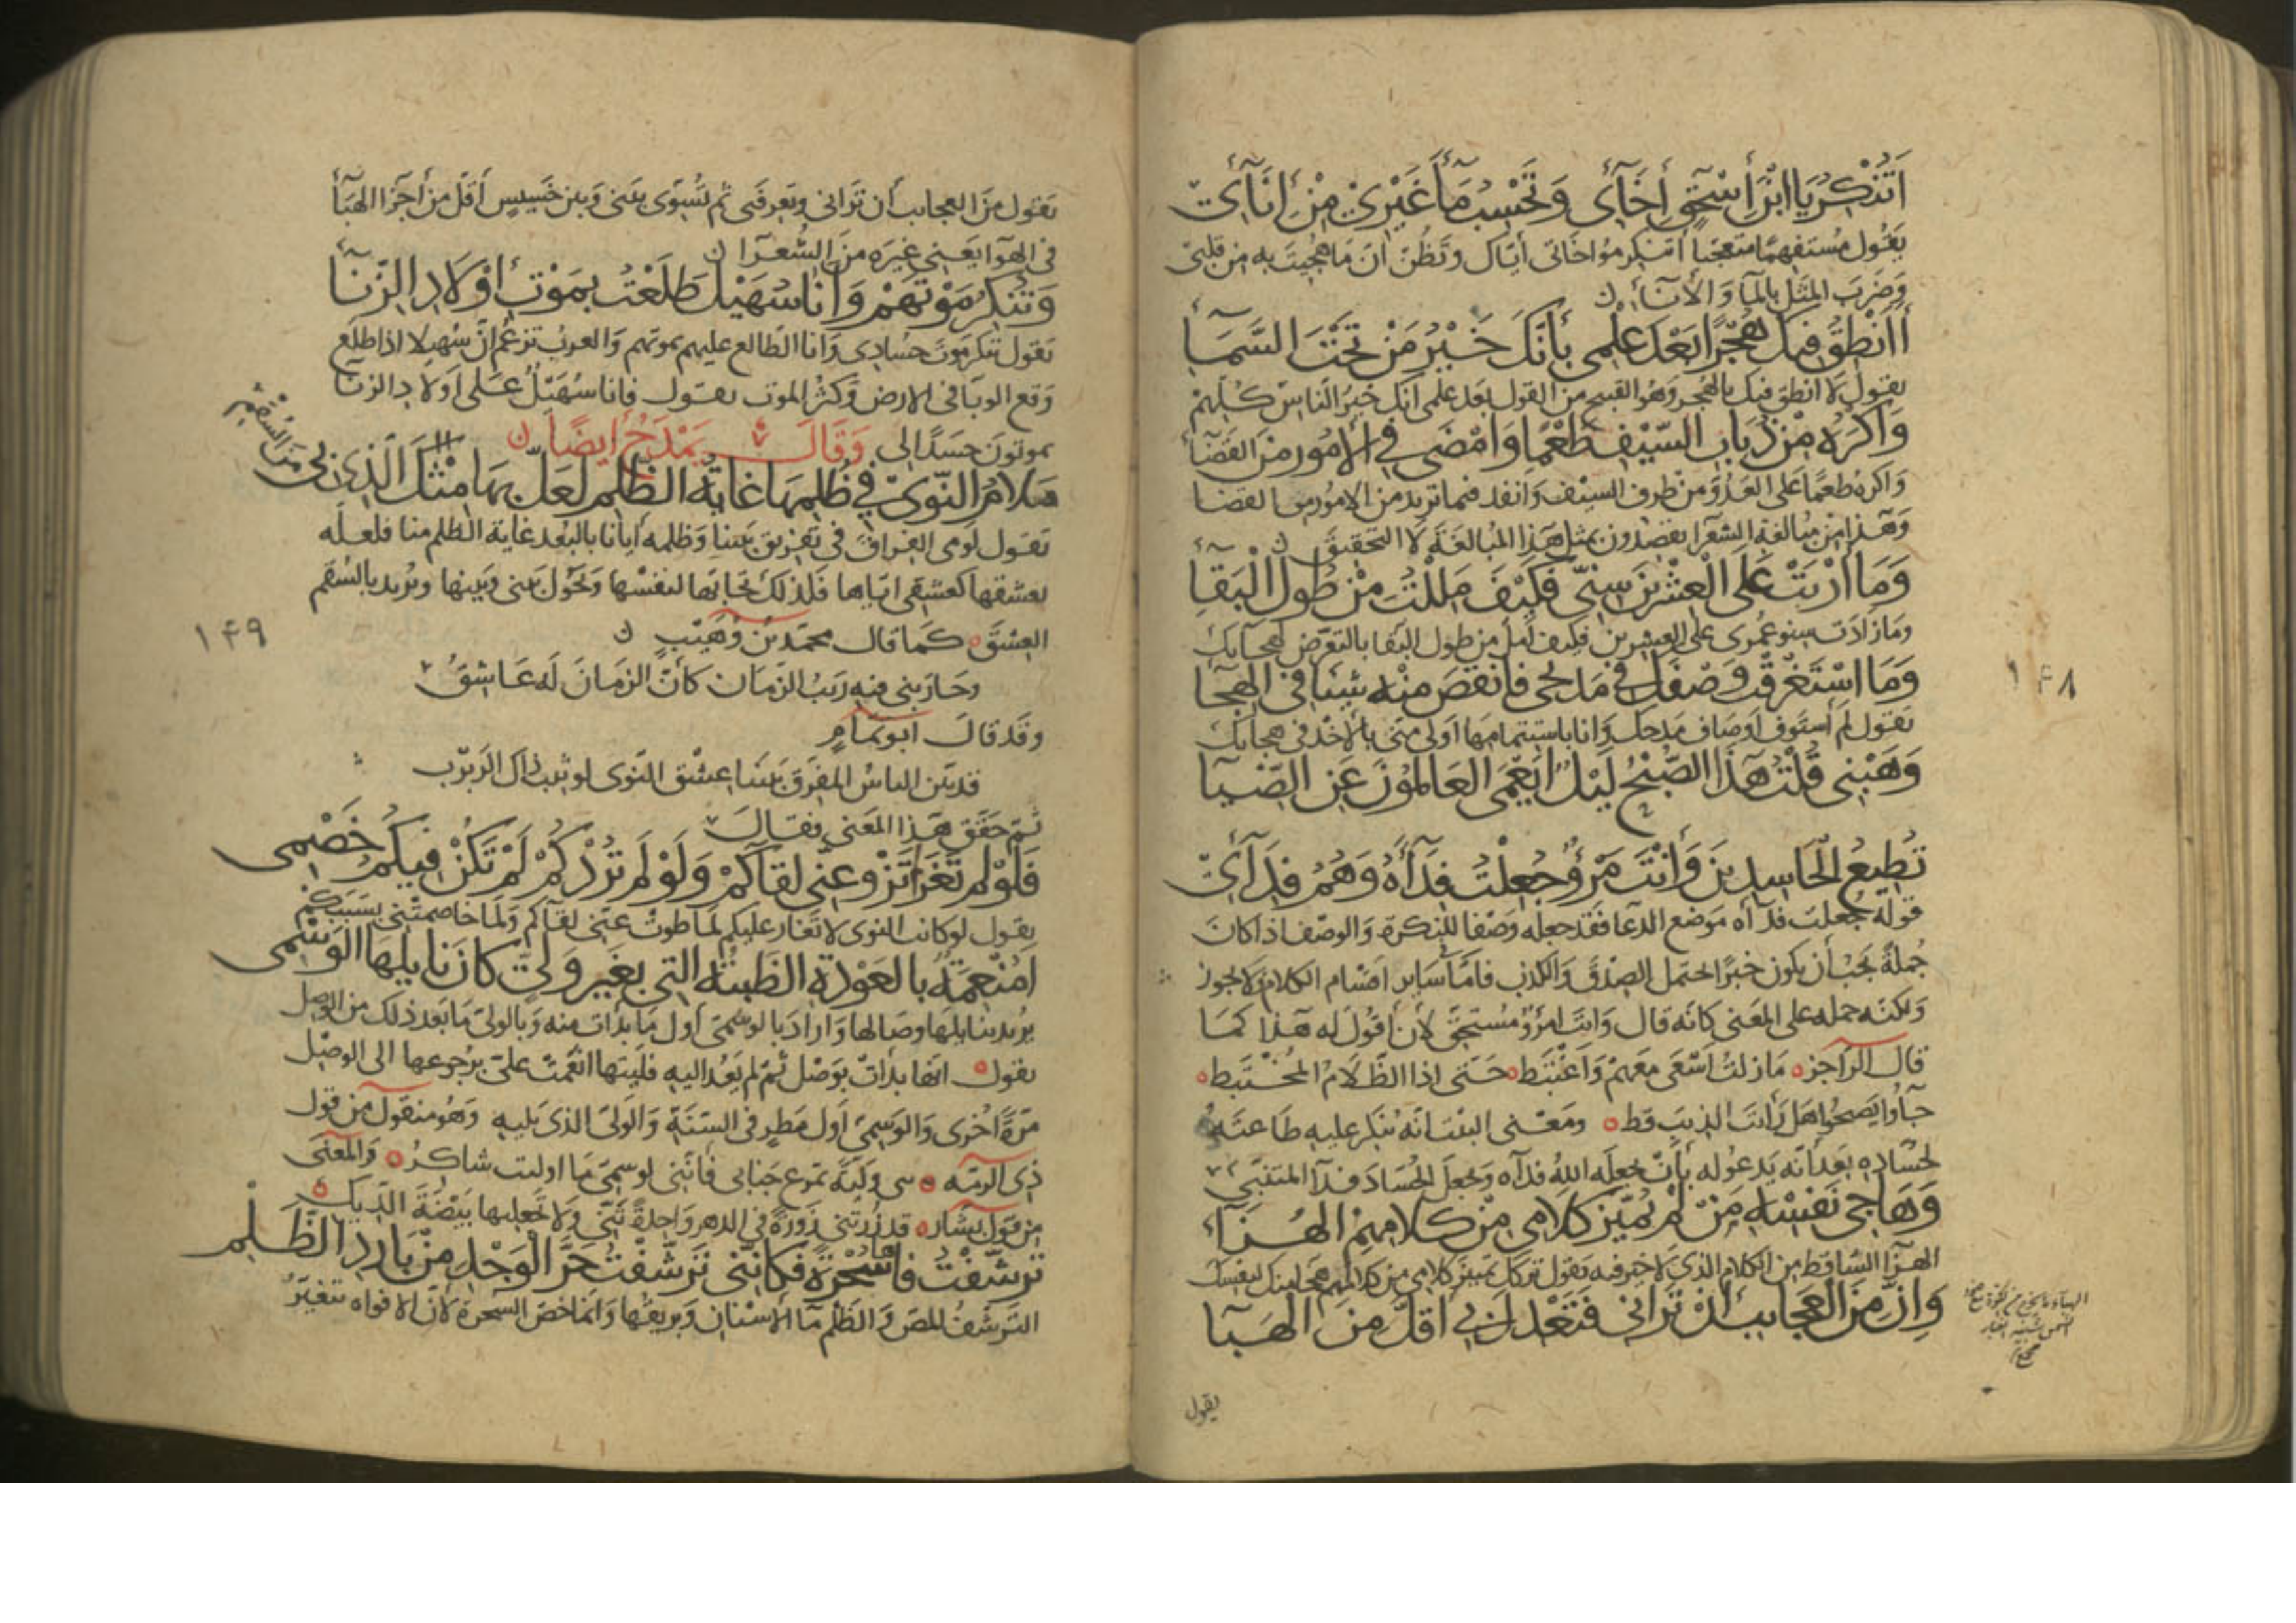 أَتُنْكِرُ يَا ابْنَ إِسْحٰقٍ إِخَآئِي وَتَحْسِبُ مَآءَ غَيْرِي مِنْ إِنَآئِي
يقول مستفهما متعجبا أتنكر مؤاخاتي أيّاك وتظن أن ما هجيت به من قلبي
وضرب المثل بالمآ والأنآء
أأنطق فيك هجرا بعد علمي بأنك خير من تحت السمآء
يقول لا انطق فيك بالهجر وهو القبيح من القول بعد علمي انك خير الناس كلهم
وأكره من ذباب السيف طعما وأمضى في الأمور من القضآء
واكره طعما على العدو من طرف السيف وانفد فيما تريد من الامور من القضا
وهذا من مبالغة الشعرآ يقصدون بمثل هذا المبالغة لا التحقيق
وما أربت على العشرين سني فكيف مللت من طول البقآء
وما زادت سنو عمري على العشرين فكيف امل من طول البقا بالتعرض لهجآيك
وما استغرقت وصفك في مديحي فانقص منه شيئا في الهجآ
يقول لم أستوف اوصاف مدحك وانا باستتمامها اولى مني بالاخذ في هجآيك
وهبني قلت هذا الصبح ليل ايعمى العالمون عن الضيآ
تطيع الحاسدين وأنت مرؤ جعلت فدآءه وهم فدآئي
قوله جعلت فدآه موضع الدعا فقد جعله وصفا للنكرة والوصف اذا كان
جملة يجب أن يكون خبرا يحتمل الصدق والكذب فامّا ساير اقسام الكلام فلا يجوز
ولكنه حمله على المعنى كانه قال وانت امرؤ مستحق لأن أقول له هذا كما
قال الراجز ه ما زلت أسعى معهم واغتبط ه حتى اذا الظلام المختبط ه
جآوا بضيح هل رأيت الذيب قط ه ومعنى البيت انه ينكر عليه طاعته
لحساده بعد أنه يدعو له بأن يجعله الله فدآه ويجعل الحساد فدآ المتنبي
وهاجي نفسه من لم يميز كلامي من كلامهم الهرآء
الهرآ الساقط من الكلام الذي لا خير فيه يقول تركك تمييز كلامي من كلامهم هجا منك لنفسك
وإن من العجايب أن تراني فتعدل بي أقل من الهبآ
يقول
١٤٨
يقول من العجايب أن تراني وتعرفني ثم تسوي بيني وبين خسيس أقل من أجزا الهبآ
في الهوآ يعني غيره من الشعرآ
وتنكر موتهم وأنا سهيل طلعت بموت أولاد الزنآ
يقول تنكر موت حسادي وانا الطالع عليهم بموتهم والعرب تزعم ان سهيلا اذا طلع
وقع الوبآ في الارض وكثر الموت يقول فانا سهيل على اولاد الزنآ
يموتون حسدا لي وقال يمدح أيضا
ملام النوى في ظلمها غاية الظلم لعل بها مثل الذي بي من السقم
يقول لومي الفراق في تفريق بيننا وظلمه أيانا بالبعد غاية الظلم منا فلعله
يعشقها كعشقي اياها فلذلك يختارها لنفسها وتحول بيني وبينها ويريد بالسقم
العشق ه كما قال محمد بن وهيب
وحاربني فيه ريب الزمان كأن الزمان له عاشق
وقد قال أبو تمام
قد بين الناس المفرق بيننا عشق النوى لو ثيب ذاك الربرب
ثم حقق هذا المعنى فقال
فلو لم تغر لم تزو عني لقآكم ولو لم تردكم لم تكن فيكم خصمي
يقول لو كانت النوى لا تغار عليكم لما طوت عني لقآكم ولما خاصمتني بسببكم
أمنعمة بالعودة الظبية التي بغير ولي كان نايلها الوسمي
يريد بنايلها وصالها واراد بالوسمي أول ما بدأت منه وبالولي ما بعد ذلك من الوصل
يقول ه انها بدأت بوصل ثم لم يعد اليه فليتها انعمت علي برجوعها الى الوصل
مرة اخرى والوسمي اول مطر في السنة والولي الذي يليه وهو منقول من قول
ذي الرمه ه لني ولية تمرع جنابي فانني لوسمي ما اوليت شاكر ه والمعنى
من قول بشار ه قد زرتني زورة في الدهر واحدة ثني ولا تجعليها بيضة الديك
ترشفت فاها سحرة فكانني ترشفت حر الوجد من بارد الظلم
الترشف للمص والظلم مآ الأسنان وبريقها وانما خص السحرة لأن الافواه تتغير
١٤٩